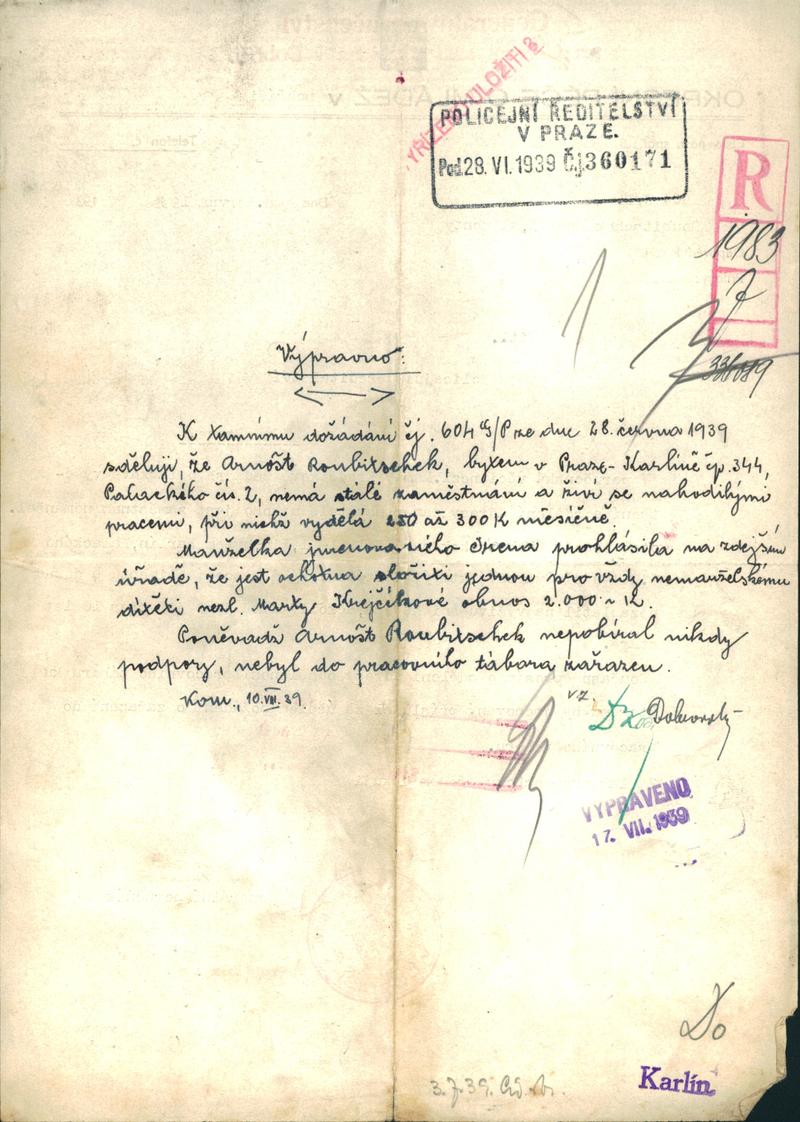 VYŘÍZENO ULOŽITI
POLICEJNÍ ŘEDITELSTVÍ
V PRAZE.
Pod. 28. VI. 1939 Čj 360171
R
1983
Výpravno:
K tamnímu dožádání čj. 604 /P ze dne 28. června 1939
sděluji, že Arnošt Roubitschek, bytem v Praze - Karlíně čp. 344,
Palackého čís. 2, nemá stálé zaměstnání a živí se nahodilými
pracemi, při nichž vydělá 250 až 300 K měsíčně.
Manželka jmenovaného Irena prohlásila na zdejším
úřadě, že jest ochotna složiti jednou pro vždy nemanželskému
dítěti nezl. Marty Krejčíkové obnos 2.000 - K.
Poněvadž Arnošt Roubitschek nepobíral nikdy
podpory, nebyl do pracovního tábora zařazen.
Kom., 10. VII. 39.
v.z.
VYPRAVENO
17. VII. 1939
Do
Karlín
3.7.39.